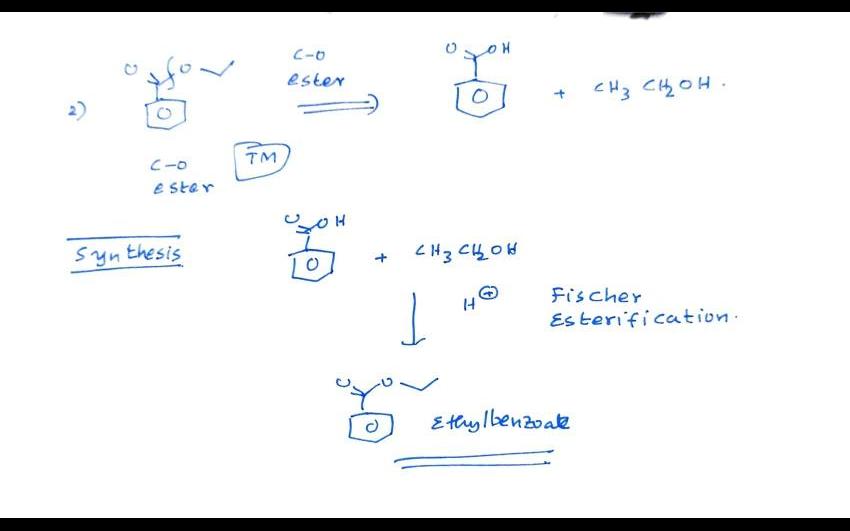 2)
O O
C-O
ester
O OH
+ CH3 CH2OH.
C-O
ester
TM
Synthesis
O OH
+ CH3CH2OH
H⊕
Fischer
Esterification.
O O
Ethylbenzoate